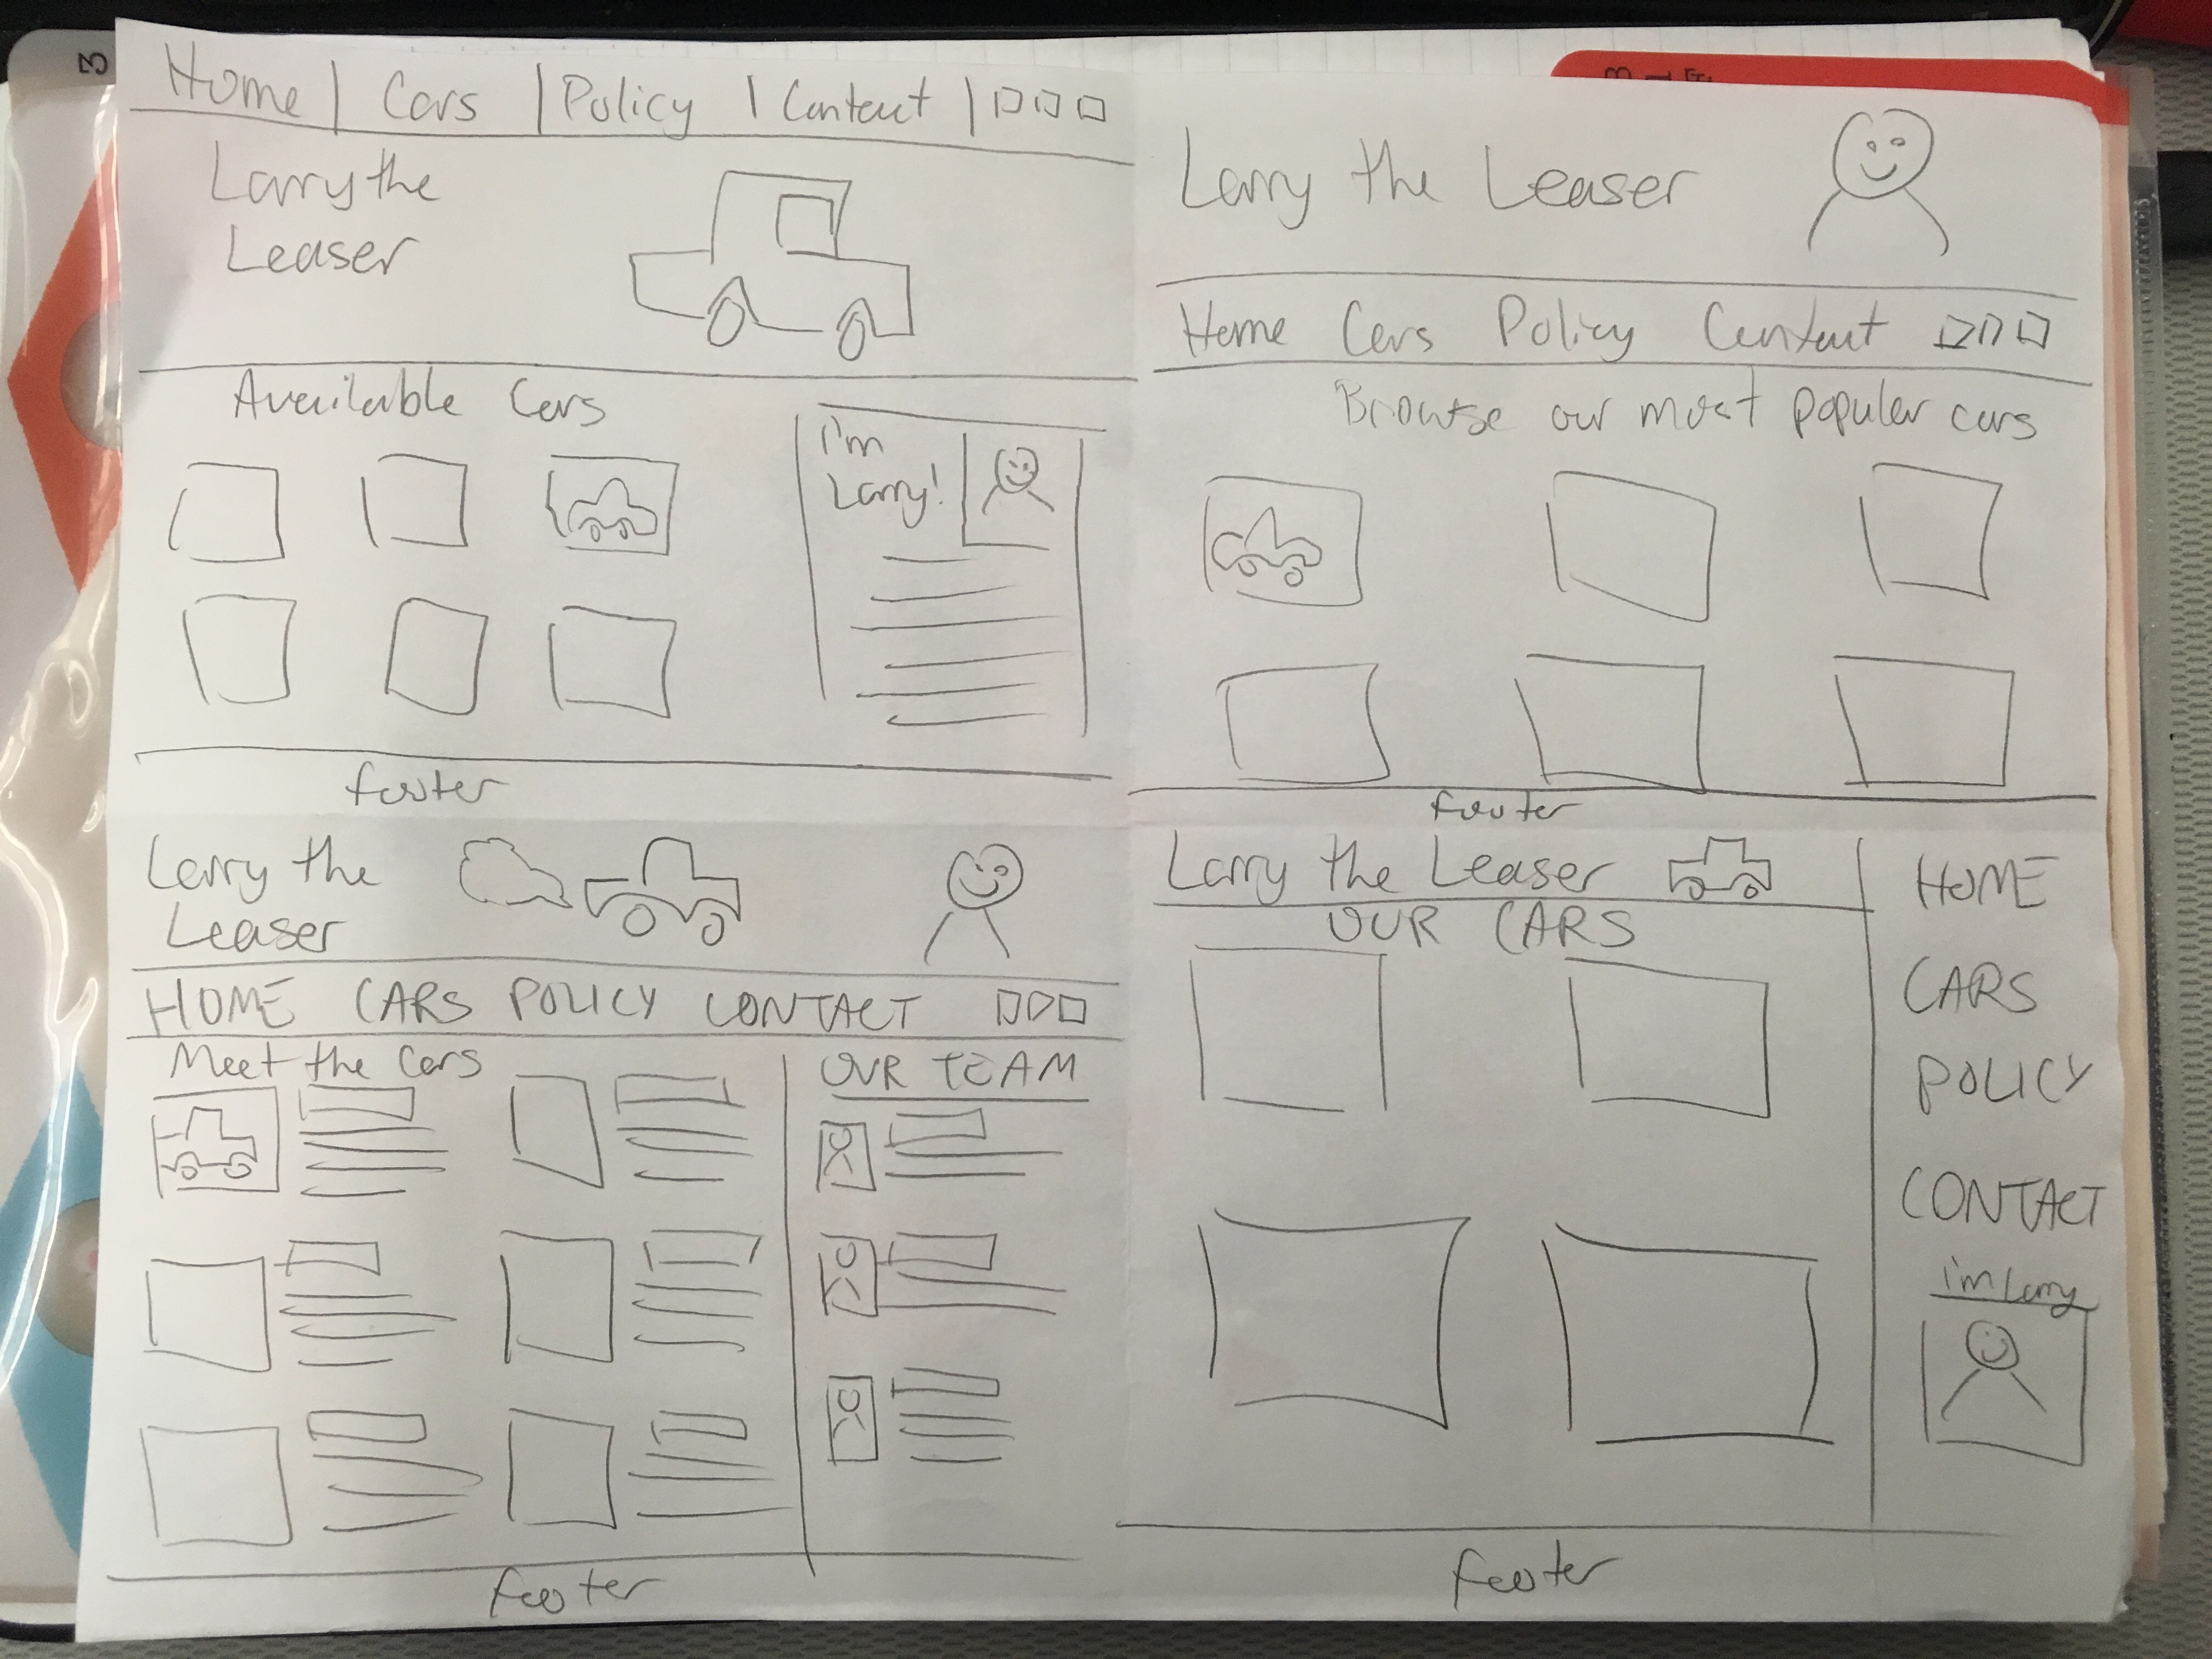 3
Home | Cars | Policy | Contact |
Larry the
Leaser
Available Cars
i'm
Larry!
footer
Larry the Leaser
Home Cars Policy Contact
Browse our most popular cars
footer
Larry the
Leaser
HOME CARS POLICY CONTACT
Meet the Cars
OUR TEAM
footer
Larry the Leaser
OUR CARS
HOME
CARS
POLICY
CONTACT
i'm Larry
footer